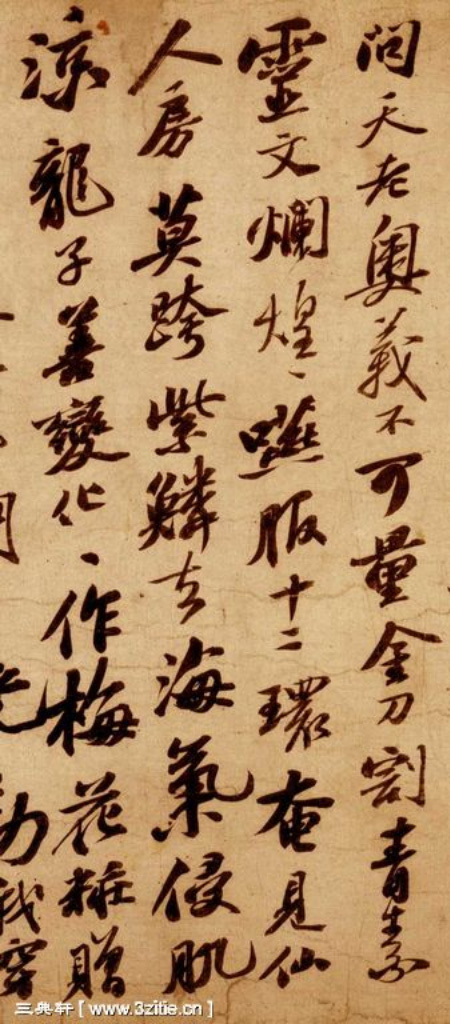 问天老奥義不可量金刀割青素
靈文爛煌〻嚥服十二環奄見仙
人房莫跨紫鱗去海氣侵肌
涼龍子善變化〻作梅花粧贈
我穿
三典轩[www.3zitie.cn]